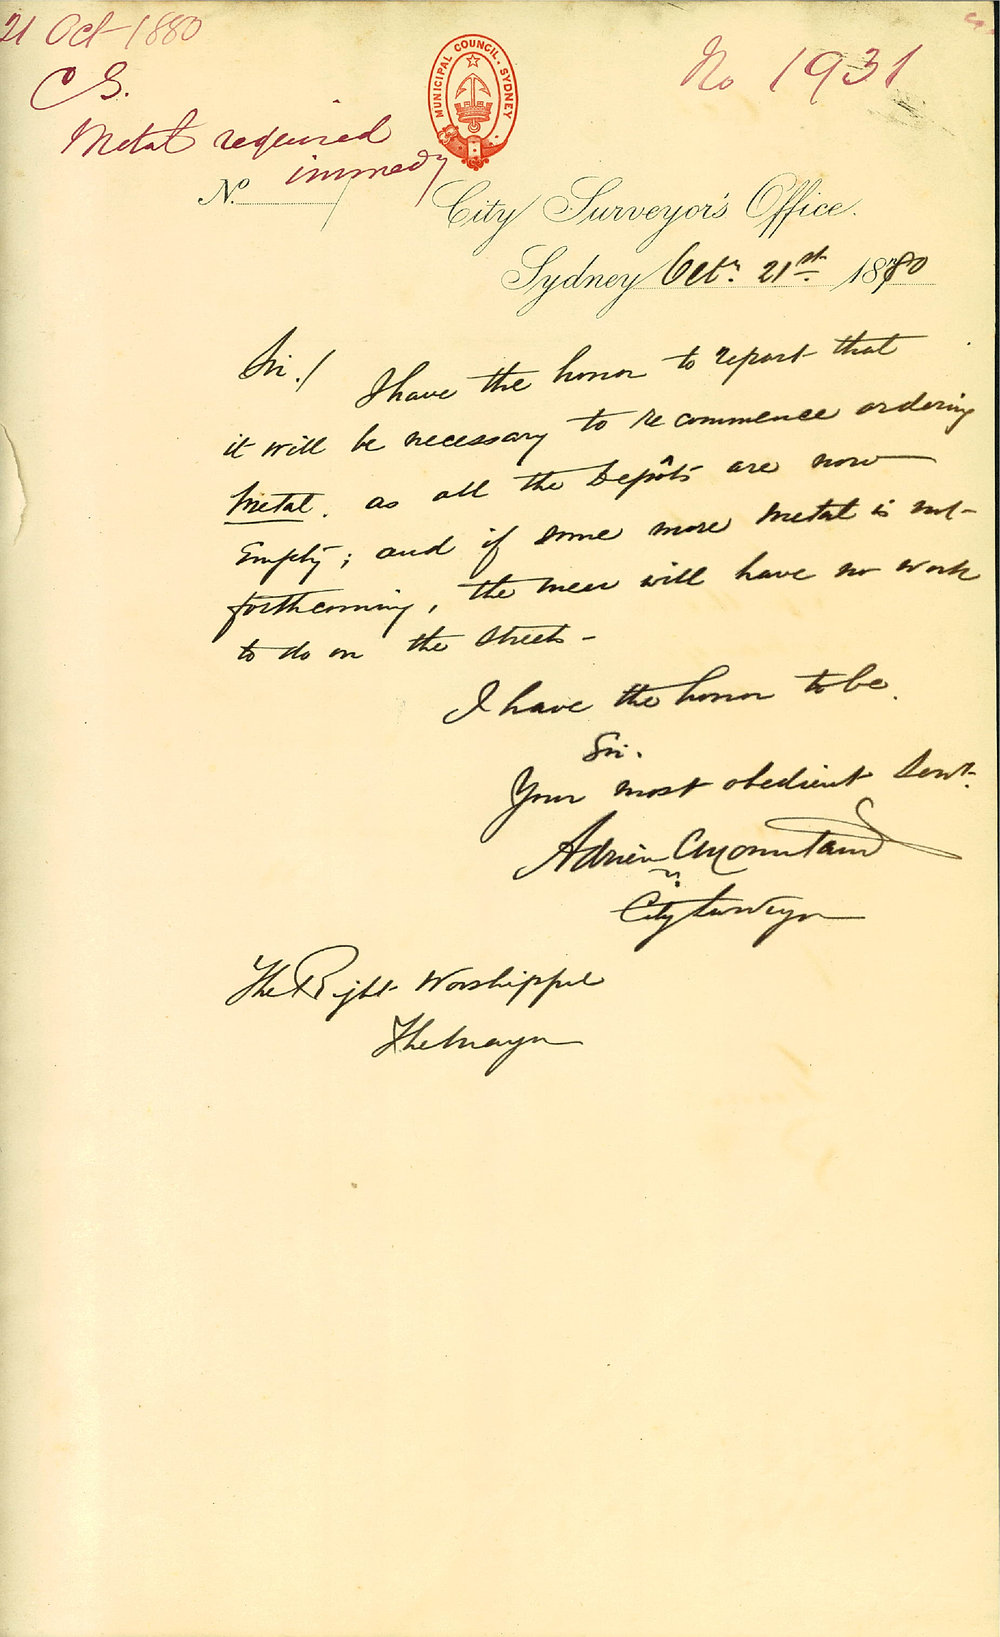 21 Oct 1880
No 1931
CS.
Metal required
immedy
MUNICIPAL COUNCIL. SYDNEY
No.
City Surveyor's Office.
Sydney Octr. 21st. 1880
Sir! I have the honor to report that
it will be necessary to recommence ordering
Metal. as all the Depôts are now
Empty; and if some more Metal is not
forthcoming, the men will have no work
to do on the streets -
I have the honor to be.
Sir.
Your most obedient Servt.
Adrien C Mountain
City Surveyor
The Right Worshipful
The Mayor